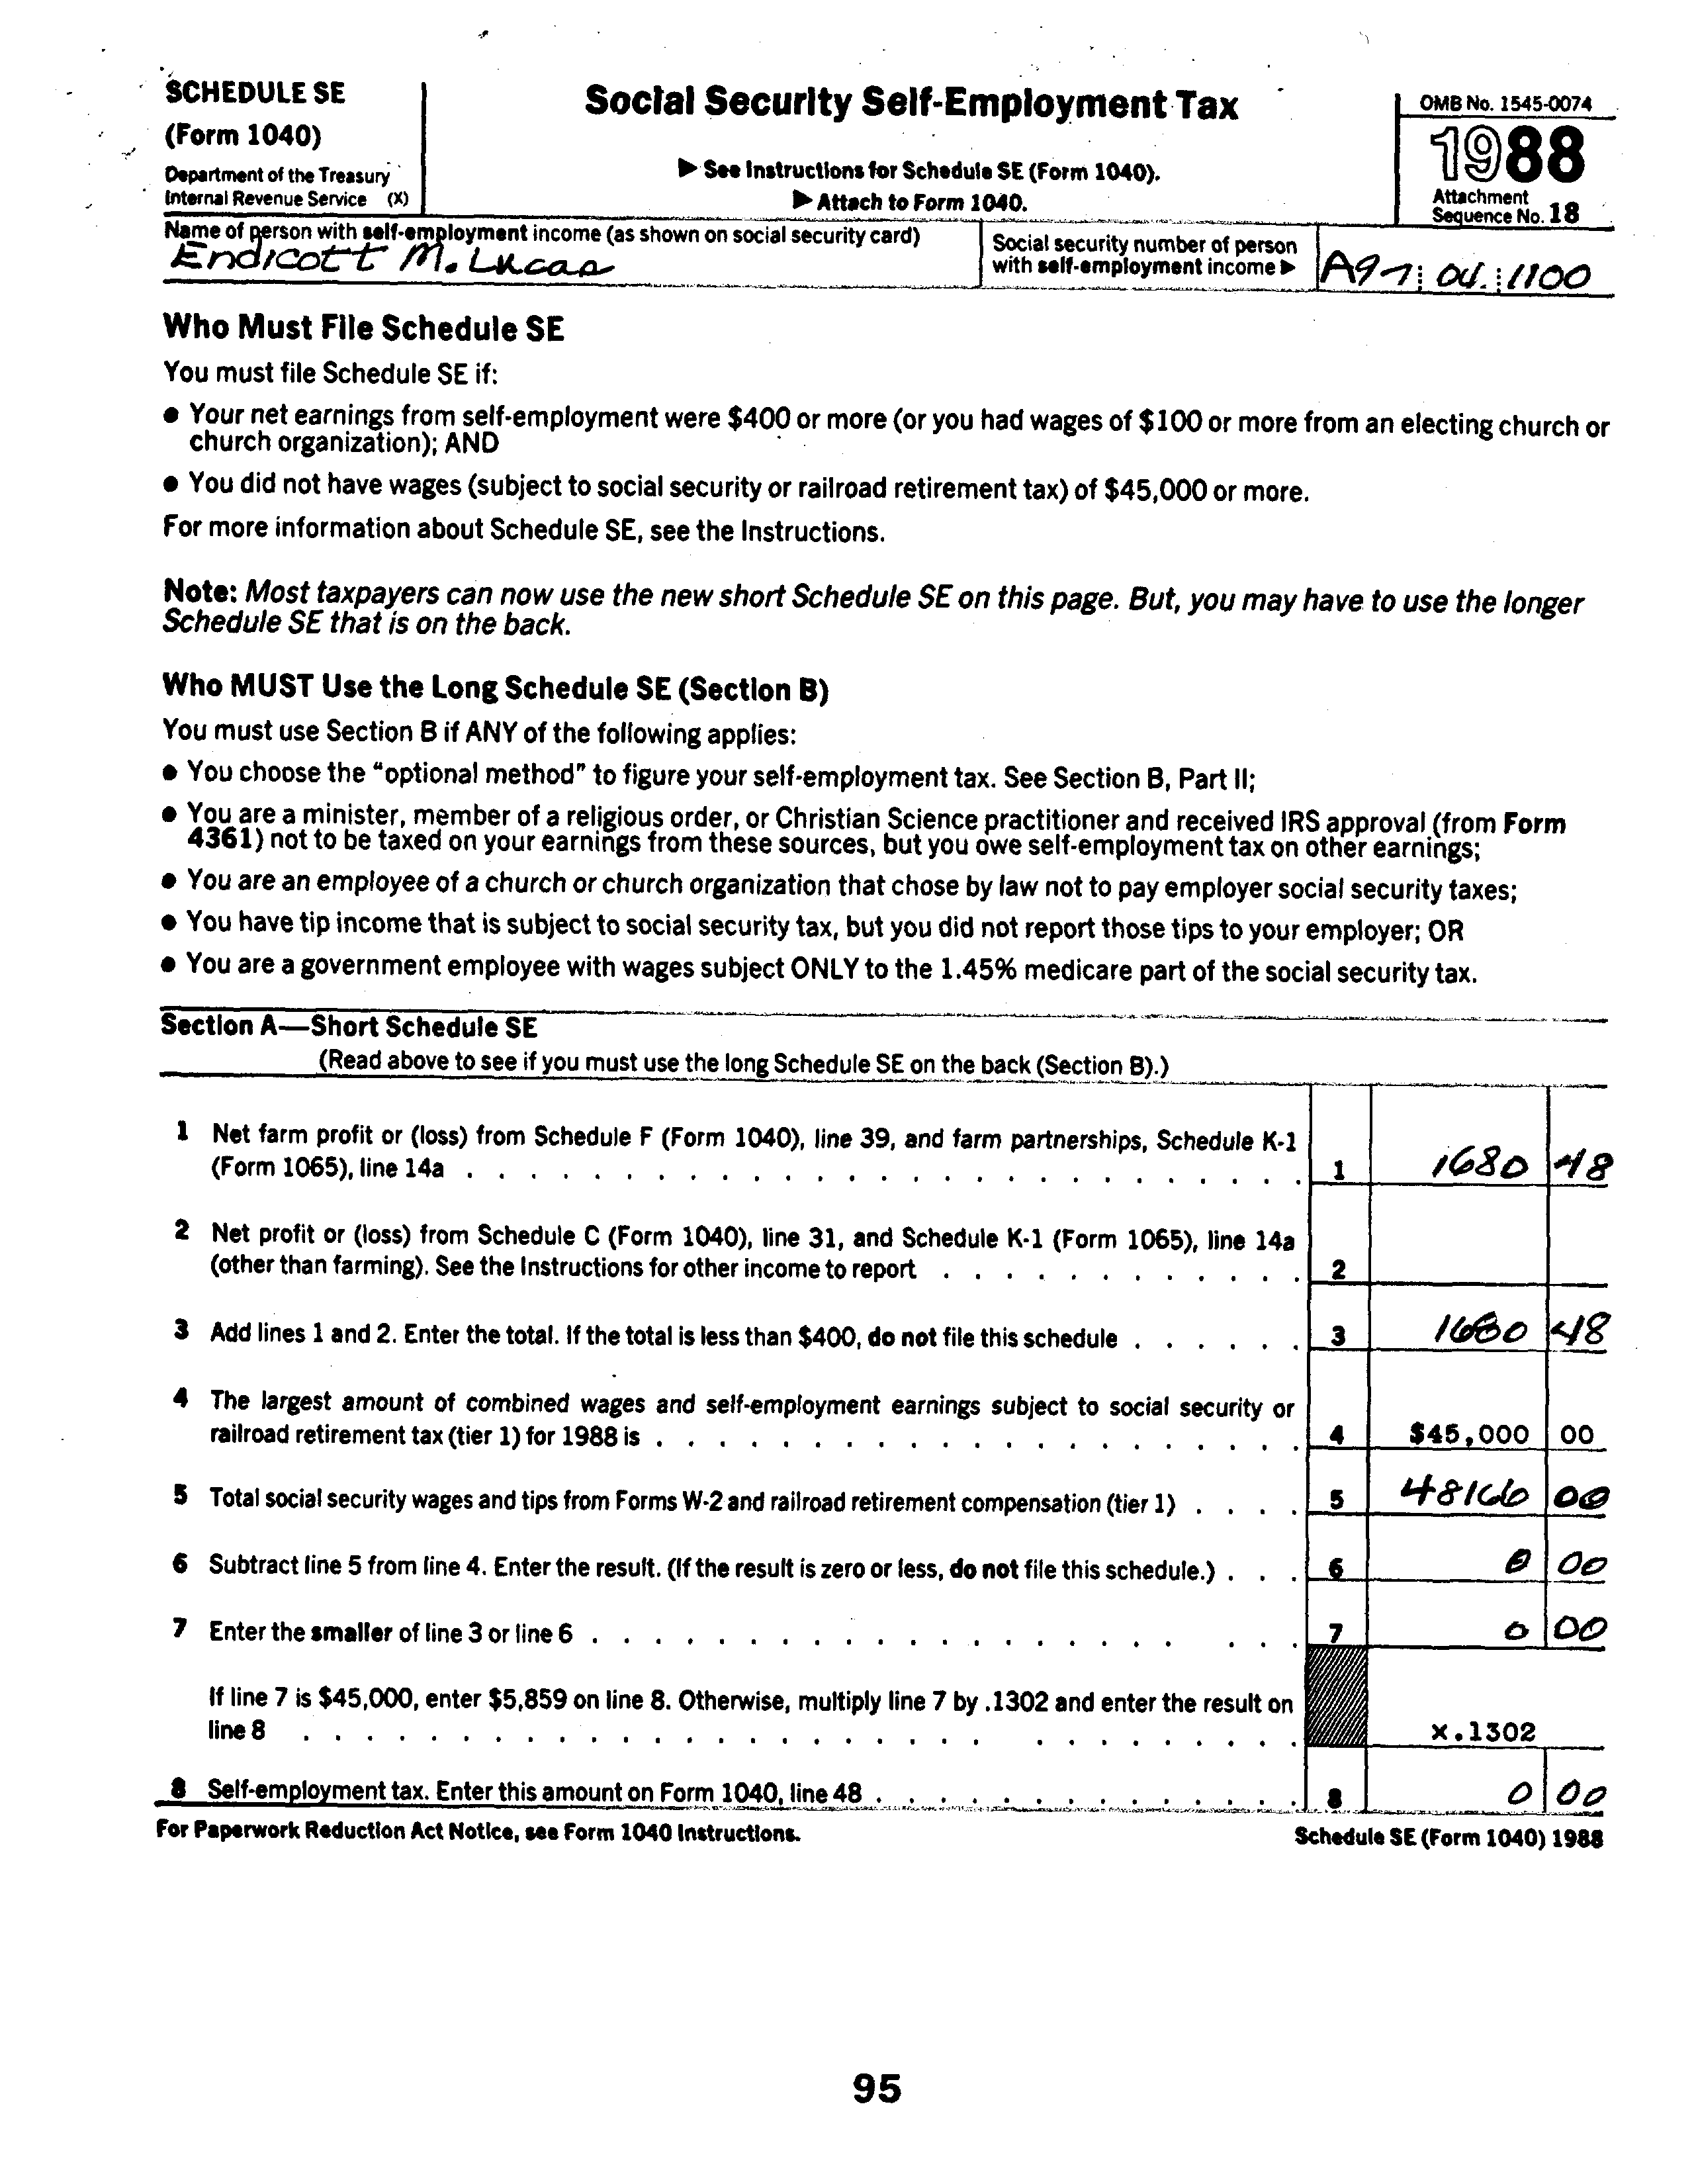 SCHEDULE SE
(Form 1040)
Department of the Treasury
Internal Revenue Service (X)
Social Security Self-Employment Tax
▶ See Instructions for Schedule SE (Form 1040).
▶ Attach to Form 1040.
OMB No. 1545-0074
1988
Attachment
Sequence No. 18
Name of person with self-employment income (as shown on social security card)
Endicott M. Lucas
Social security number of person
with self-employment income ▶
A97 04 1100
Who Must File Schedule SE
You must file Schedule SE if:
● Your net earnings from self-employment were $400 or more (or you had wages of $100 or more from an electing church or
church organization); AND
● You did not have wages (subject to social security or railroad retirement tax) of $45,000 or more.
For more information about Schedule SE, see the Instructions.
Note: Most taxpayers can now use the new short Schedule SE on this page. But, you may have to use the longer
Schedule SE that is on the back.
Who MUST Use the Long Schedule SE (Section B)
You must use Section B if ANY of the following applies:
● You choose the "optional method" to figure your self-employment tax. See Section B, Part II;
● You are a minister, member of a religious order, or Christian Science practitioner and received IRS approval (from Form
4361) not to be taxed on your earnings from these sources, but you owe self-employment tax on other earnings;
● You are an employee of a church or church organization that chose by law not to pay employer social security taxes;
● You have tip income that is subject to social security tax, but you did not report those tips to your employer; OR
● You are a government employee with wages subject ONLY to the 1.45% medicare part of the social security tax.
Section A—Short Schedule SE
(Read above to see if you must use the long Schedule SE on the back (Section B).)
1 Net farm profit or (loss) from Schedule F (Form 1040), line 39, and farm partnerships, Schedule K-1
(Form 1065), line 14a . . . . . . . . . . . . . . . . . . . . . . . . . . . 1 1680 48
2 Net profit or (loss) from Schedule C (Form 1040), line 31, and Schedule K-1 (Form 1065), line 14a
(other than farming). See the Instructions for other income to report . . . . . . . . . . . . 2
3 Add lines 1 and 2. Enter the total. If the total is less than $400, do not file this schedule . . . . . . 3 1680 48
4 The largest amount of combined wages and self-employment earnings subject to social security or
railroad retirement tax (tier 1) for 1988 is . . . . . . . . . . . . . . . . . . . . . 4 $45,000 00
5 Total social security wages and tips from Forms W-2 and railroad retirement compensation (tier 1) . . . . 5 48166 00
6 Subtract line 5 from line 4. Enter the result. (If the result is zero or less, do not file this schedule.) . . . 6 0 00
7 Enter the smaller of line 3 or line 6 . . . . . . . . . . . . . . . . . . . . . . 7 0 00
If line 7 is $45,000, enter $5,859 on line 8. Otherwise, multiply line 7 by .1302 and enter the result on
line 8 . . . . . . . . . . . . . . . . . . . . . . . . . . . . . . x.1302
8 Self-employment tax. Enter this amount on Form 1040, line 48 . . . . . . . . . . . . . . 8 0 00
For Paperwork Reduction Act Notice, see Form 1040 Instructions.
Schedule SE (Form 1040) 1988
95